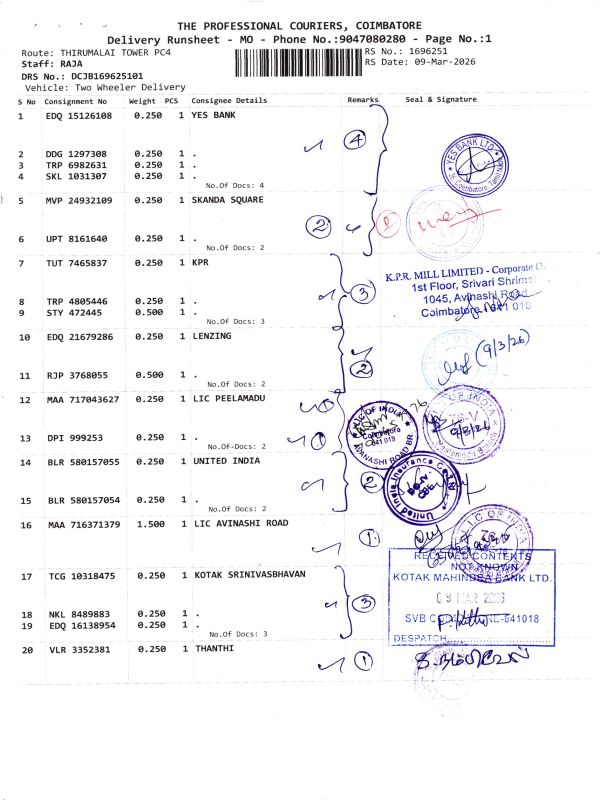 THE PROFESSIONAL COURIERS, COIMBATORE
Delivery Runsheet - MO - Phone No.:9047080280 - Page No.:1
Route: THIRUMALAI TOWER PC4
RS No.: 1696251
Staff: RAJA
RS Date: 09-Mar-2026
DRS No.: DCJB169625101
Vehicle: Two Wheeler Delivery
S No Consignment No Weight PCS Consignee Details Remarks Seal & Signature
1 EDQ 15126108 0.250 1 YES BANK
4
YES BANK LTD.
Coimbatore, Tamil Nadu
2 DDG 1297308 0.250 1 .
3 TRP 6982631 0.250 1 .
4 SKL 1031307 0.250 1 .
No.Of Docs: 4
5 MVP 24932109 0.250 1 SKANDA SQUARE
2
6 UPT 8161640 0.250 1 .
No.Of Docs: 2
7 TUT 7465837 0.250 1 KPR
3
K.P.R. MILL LIMITED - Corporate O
1st Floor, Srivari Shrimat
1045, Avinashi Road
Coimbatore. 641 018
8 TRP 4805446 0.250 1 .
9 STY 472445 0.500 1 .
No.Of Docs: 3
10 EDQ 21679286 0.250 1 LENZING
2
(9/3/26)
11 RJP 3768055 0.500 1 .
No.Of Docs: 2
12 MAA 717043627 0.250 1 LIC PEELAMADU
1
LIC OF INDIA
Coimbatore
641 018
AVANASHI ROAD BR
9/3/26
13 DPI 999253 0.250 1 .
1
No.Of-Docs: 2
14 BLR 580157055 0.250 1 UNITED INDIA
2
United India Insurance Co. Ltd
15 BLR 580157054 0.250 1 .
No.Of Docs: 2
16 MAA 716371379 1.500 1 LIC AVINASHI ROAD
1
LIC OF INDIA
RECEIVED CONTENTS
NOT KNOWN
KOTAK MAHINDRA BANK LTD.
09 MAR 2026
641018
DESPATCH
17 TCG 10318475 0.250 1 KOTAK SRINIVASBHAVAN
3
18 NKL 8489883 0.250 1 .
19 EDQ 16138954 0.250 1 .
No.Of Docs: 3
20 VLR 3352381 0.250 1 THANTHI
1